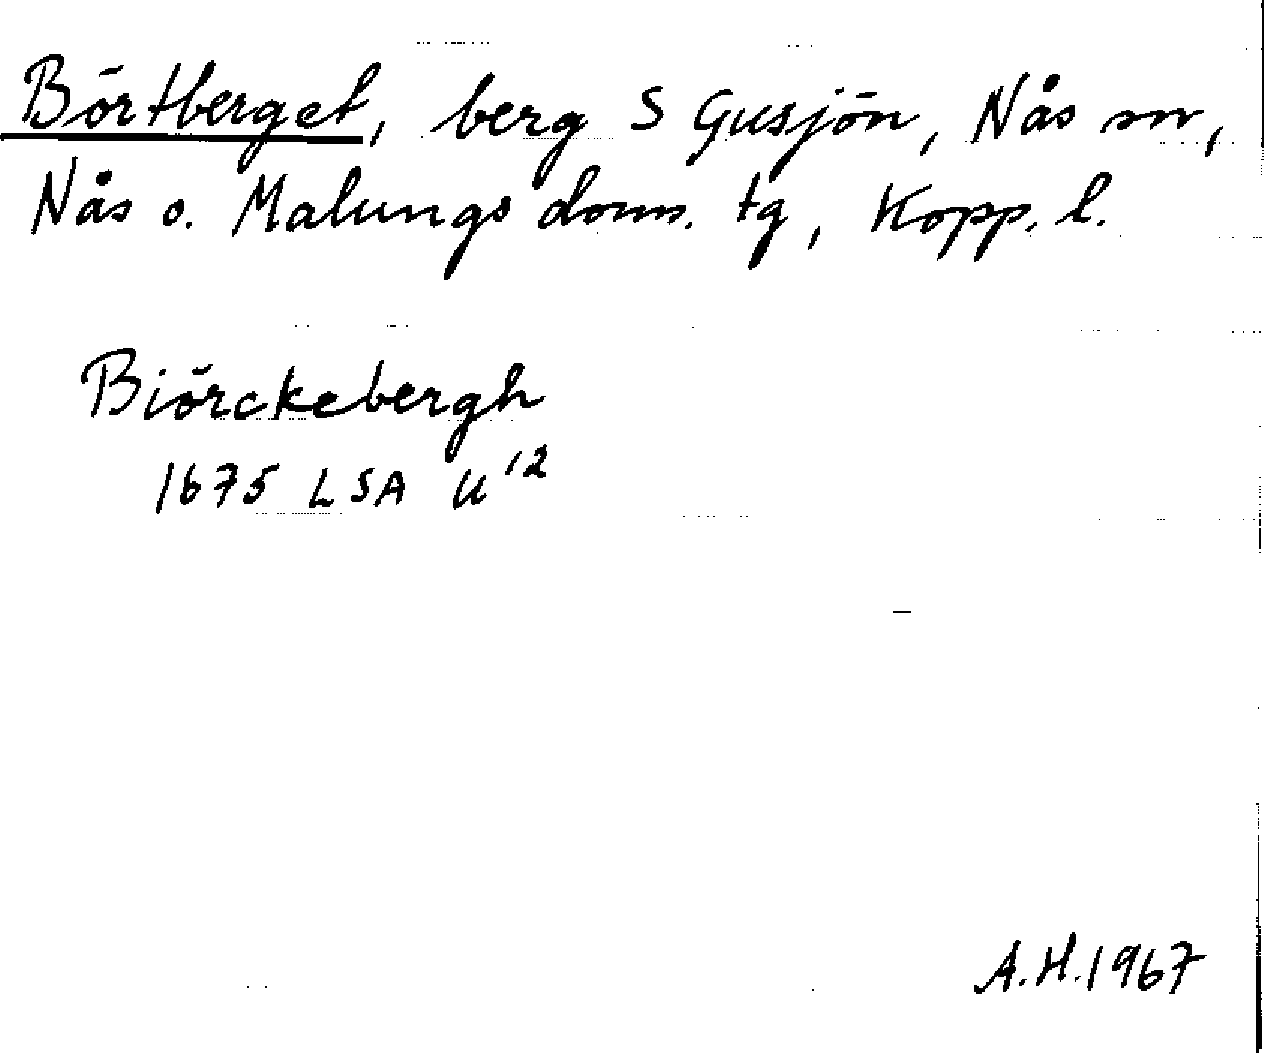 Börtberget, berg S Gusjön, Nås sn,
Nås o. Malungs doms. tg, Kopp. l.
Biörckebergh
1675 LSA U 12
A.H. 1967